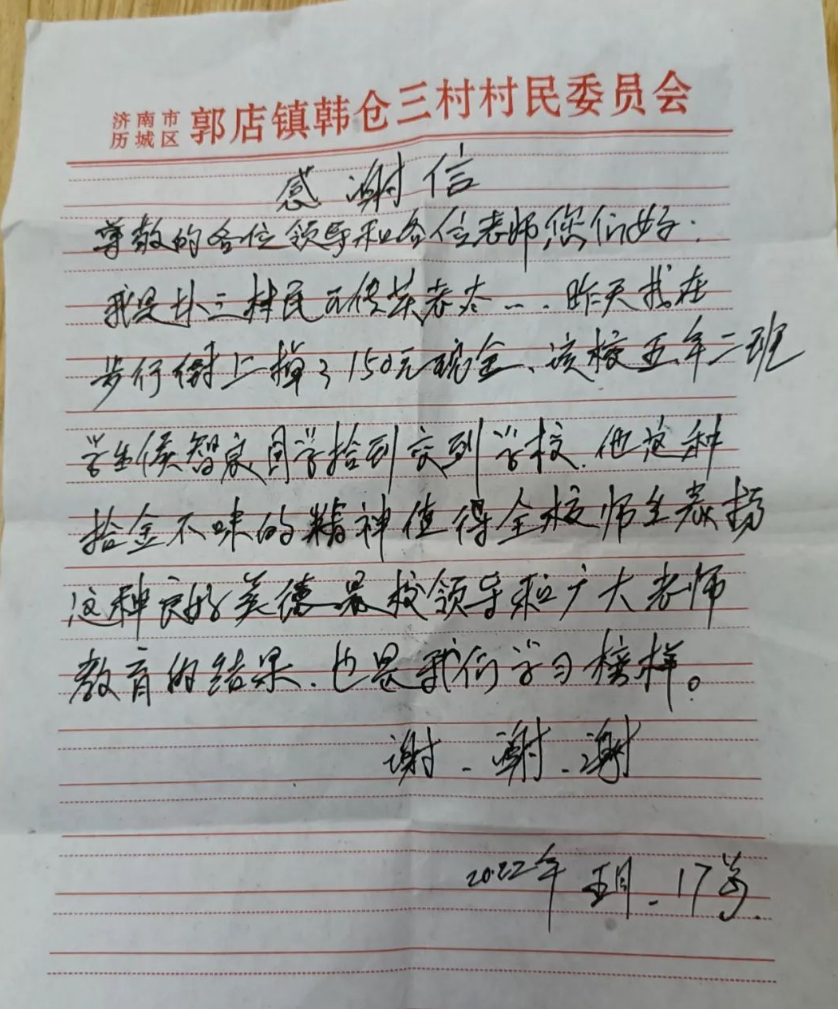 济南市
历城区 郭店镇韩仓三村村民委员会
感谢信
尊敬的各位领导和各位老师您们好.
我是 三村民 传英老太一. 昨天我在
步行街上掉了150元现金、该校五年二班
学生侯智宸同学拾到交到学校. 他这种
拾金不昧的精神值得全校师生表扬
这种良好美德是校领导和广大老师
教育的结果. 也是我们学习榜样。
谢.谢.谢
2022年 五月.17号.